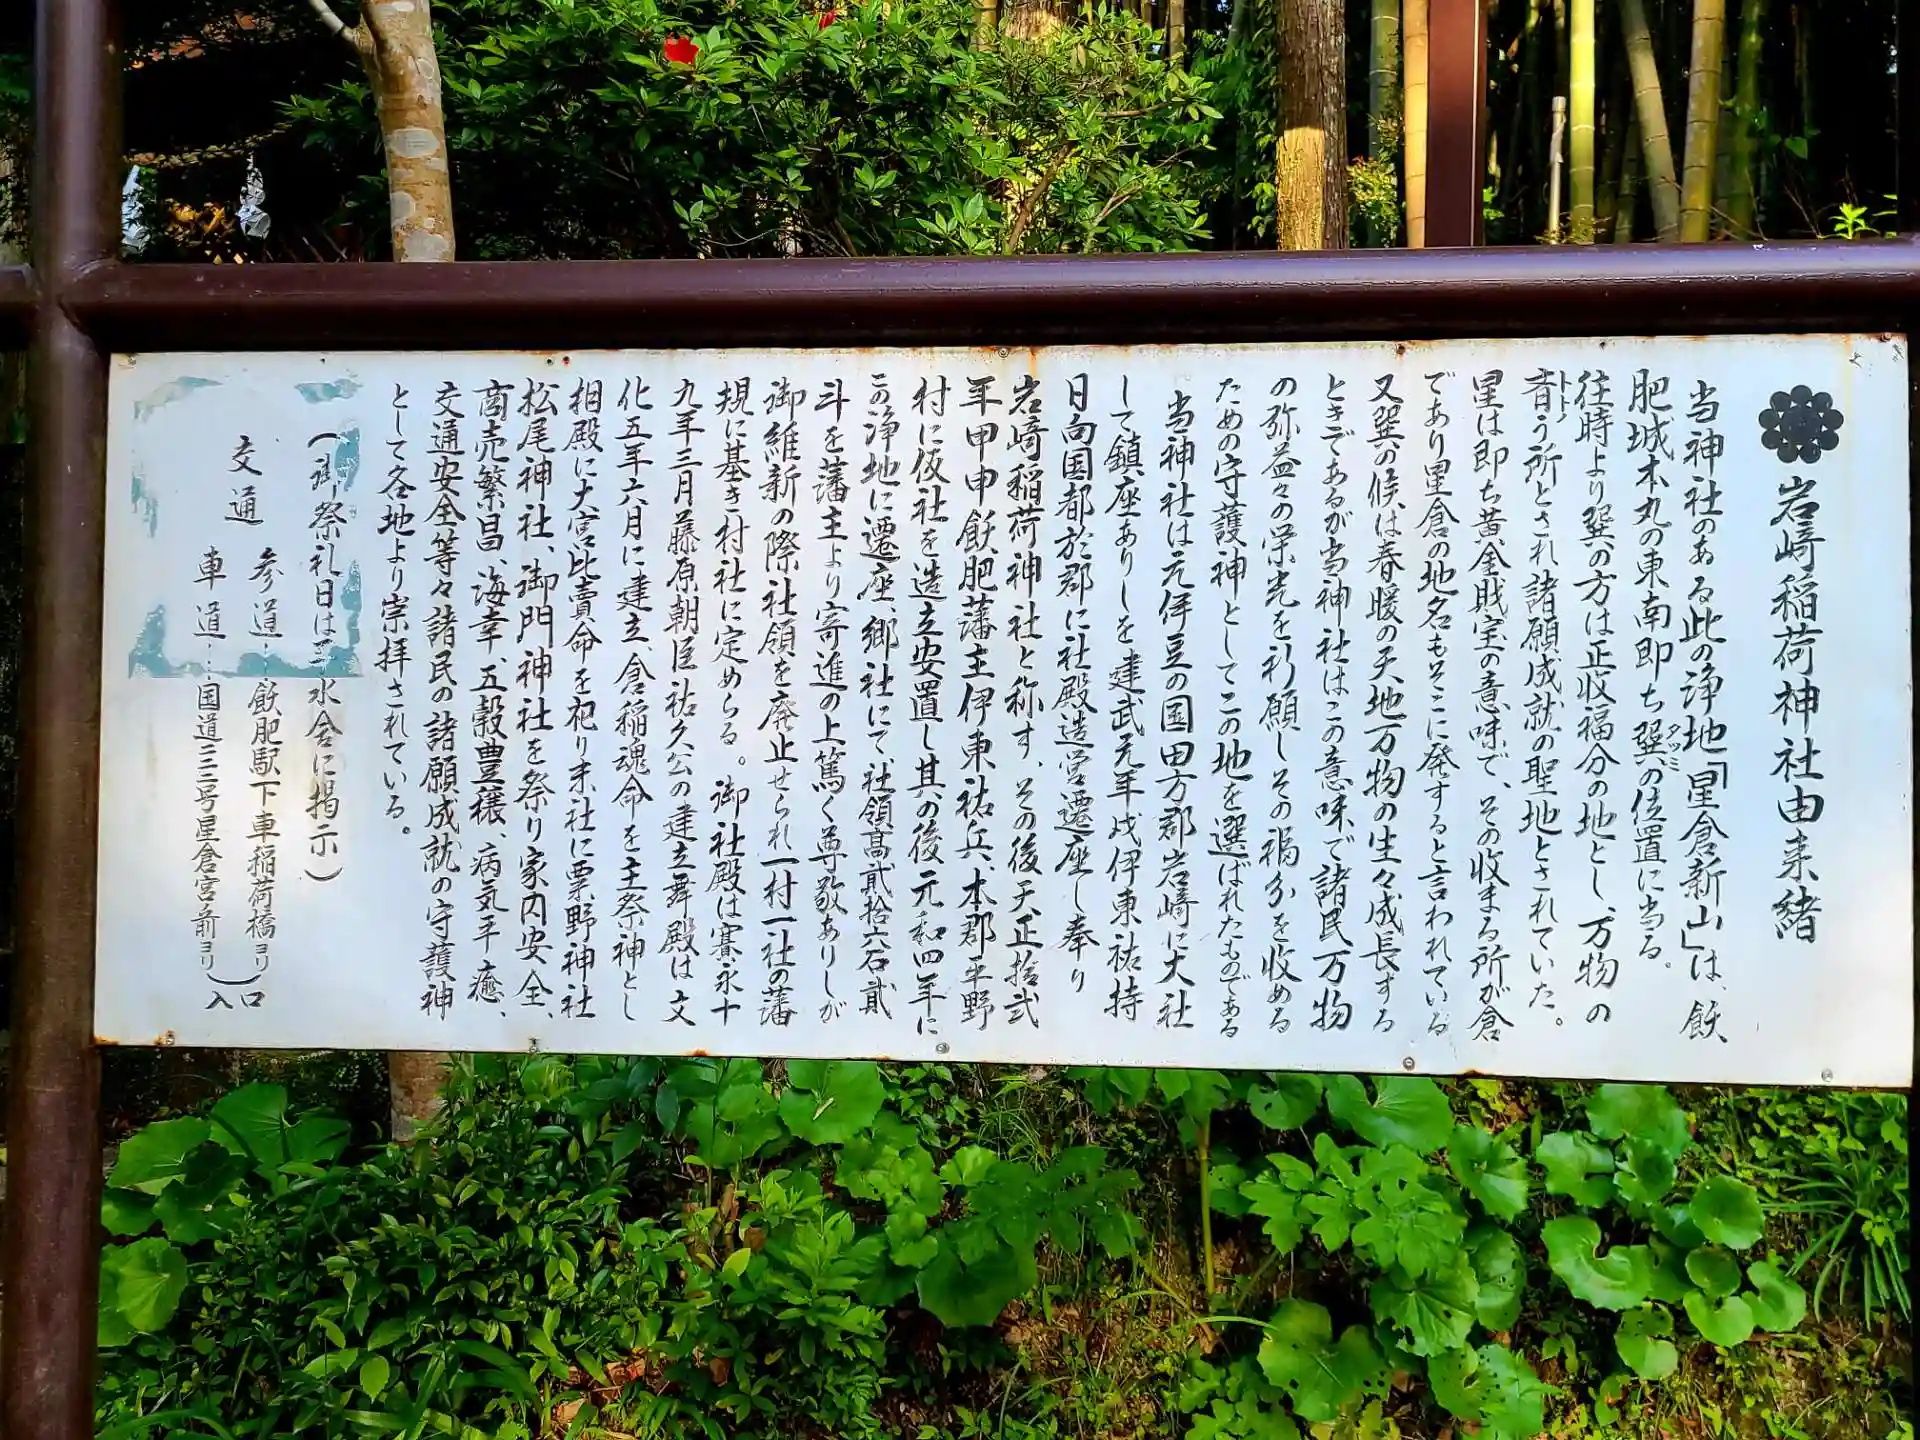 岩﨑稲荷神社由来緒
当神社のある此の浄地「星倉新山」は、飫
肥城本丸の東南即ち巽の位置に当る。
タツミ
往時より巽の方は正収福分の地とし、万物の
斉う所とされ諸願成就の聖地とされていた。
トトノ
星は即ち黄金財宝の意味で、その収まる所が倉
であり星倉の地名もそこに発すると言われている
又巽の候は春暖の天地万物の生々成長する
ときであるが当神社はこの意味で諸民万物
の弥益々の栄光を祈願しその福分を収める
ための守護神としてこの地を選ばれたものである
当神社は元伊豆の国田方郡岩﨑に大社
して鎮座ありしを建武元年戌伊東祐持
日向国都於郡に社殿造営遷座し奉り
岩﨑稲荷神社と称す、その後天正拾弐
年甲申飫肥藩主伊東祐兵、本郡平野
村に仮社を造立安置し其の後元和四年に
この浄地に遷座、郷社にて社領高貮拾六石貮
斗を藩主より寄進の上篤く尊敬ありしが
御維新の際社領を廃止せられ一村一社の藩
規に基き村社に定めらる。御社殿は寛永十
九年三月藤原朝臣祐久公の建立舞殿は文
化五年六月に建立、倉稲魂命を主祭神とし
相殿に大宮比賣命を祀り末社に粟野神社
松尾神社、御門神社を祭り家内安全、
商売繁昌、海幸、五穀豊穣、病気平癒、
交通安全等々諸民の諸願成就の守護神
として各地より崇拝されている。
(御祭礼日は手水舎に掲示)
交通 参道……飫肥駅下車稲荷橋ヨリ
車道……国道二二二号星倉宮前ヨリ
入口